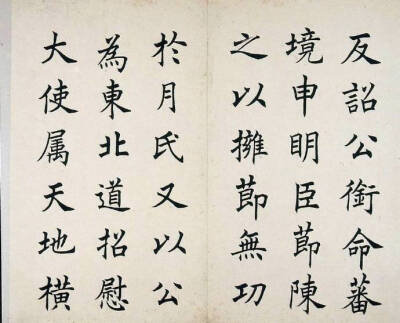 反詔公銜命蕃
境申明臣節陳
之以擁節無功
於月氏又以公
為東北道招慰
大使属天地橫